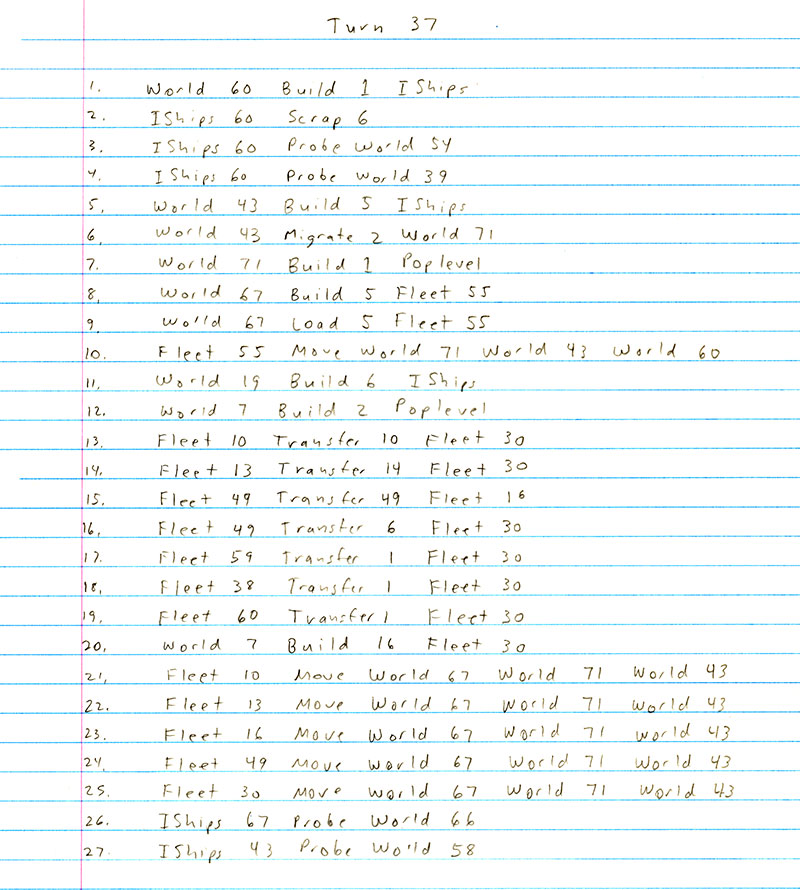 Turn 37
1. World 60 Build 1 IShips
2. IShips 60 Scrap 6
3. IShips 60 Probe World 54
4. IShips 60 Probe World 39
5. World 43 Build 5 IShips
6. World 43 Migrate 2 World 71
7. World 71 Build 1 Poplevel
8. World 67 Build 5 Fleet 55
9. World 67 Load 5 Fleet 55
10. Fleet 55 Move World 71 World 43 World 60
11. World 19 Build 6 IShips
12. World 7 Build 2 Poplevel
13. Fleet 10 Transfer 10 Fleet 30
14. Fleet 13 Transfer 14 Fleet 30
15. Fleet 49 Transfer 49 Fleet 16
16. Fleet 49 Transfer 6 Fleet 30
17. Fleet 59 Transfer 1 Fleet 30
18. Fleet 38 Transfer 1 Fleet 30
19. Fleet 60 Transfer 1 Fleet 30
20. World 7 Build 16 Fleet 30
21. Fleet 10 Move World 67 World 71 World 43
22. Fleet 13 Move World 67 World 71 World 43
23. Fleet 16 Move World 67 World 71 World 43
24. Fleet 49 Move World 67 World 71 World 43
25. Fleet 30 Move World 67 World 71 World 43
26. IShips 67 Probe World 66
27. IShips 43 Probe World 58